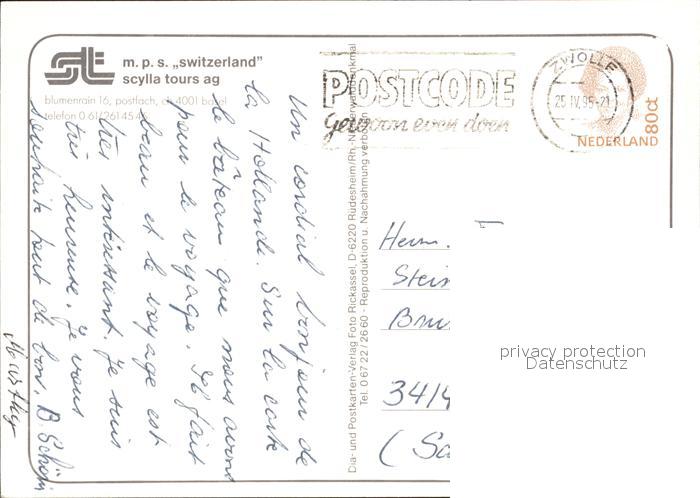 m. p. s. „switzerland"
scylla tours ag
blumenrain 16, postfach, ch 4001 basel
telefon 0 61/261 45 46
POSTCODE
gewoon even doen
ZWOLLE
25.IV.95-21
80ct
NEDERLAND
Un cordial bonjour de
la Hollande. Sur la carte
le bâteau que nous avons
pour le voyage. Il fait
beau et le voyage est
très intéressant. Je suis
très heureuse. Je vous
souhaite tout de bon. B. Schöni
Dia- und Postkarten-Verlag Foto Rickassel, D-6220 Rüdesheim/Rh.-Niederwalddenkmal
Tel. 0 67 22 / 26 60 - Reproduktion u. Nachahmung verboten
Herrn.
Stein
Bru
3414
(Sa
privacy protection
Datenschutz